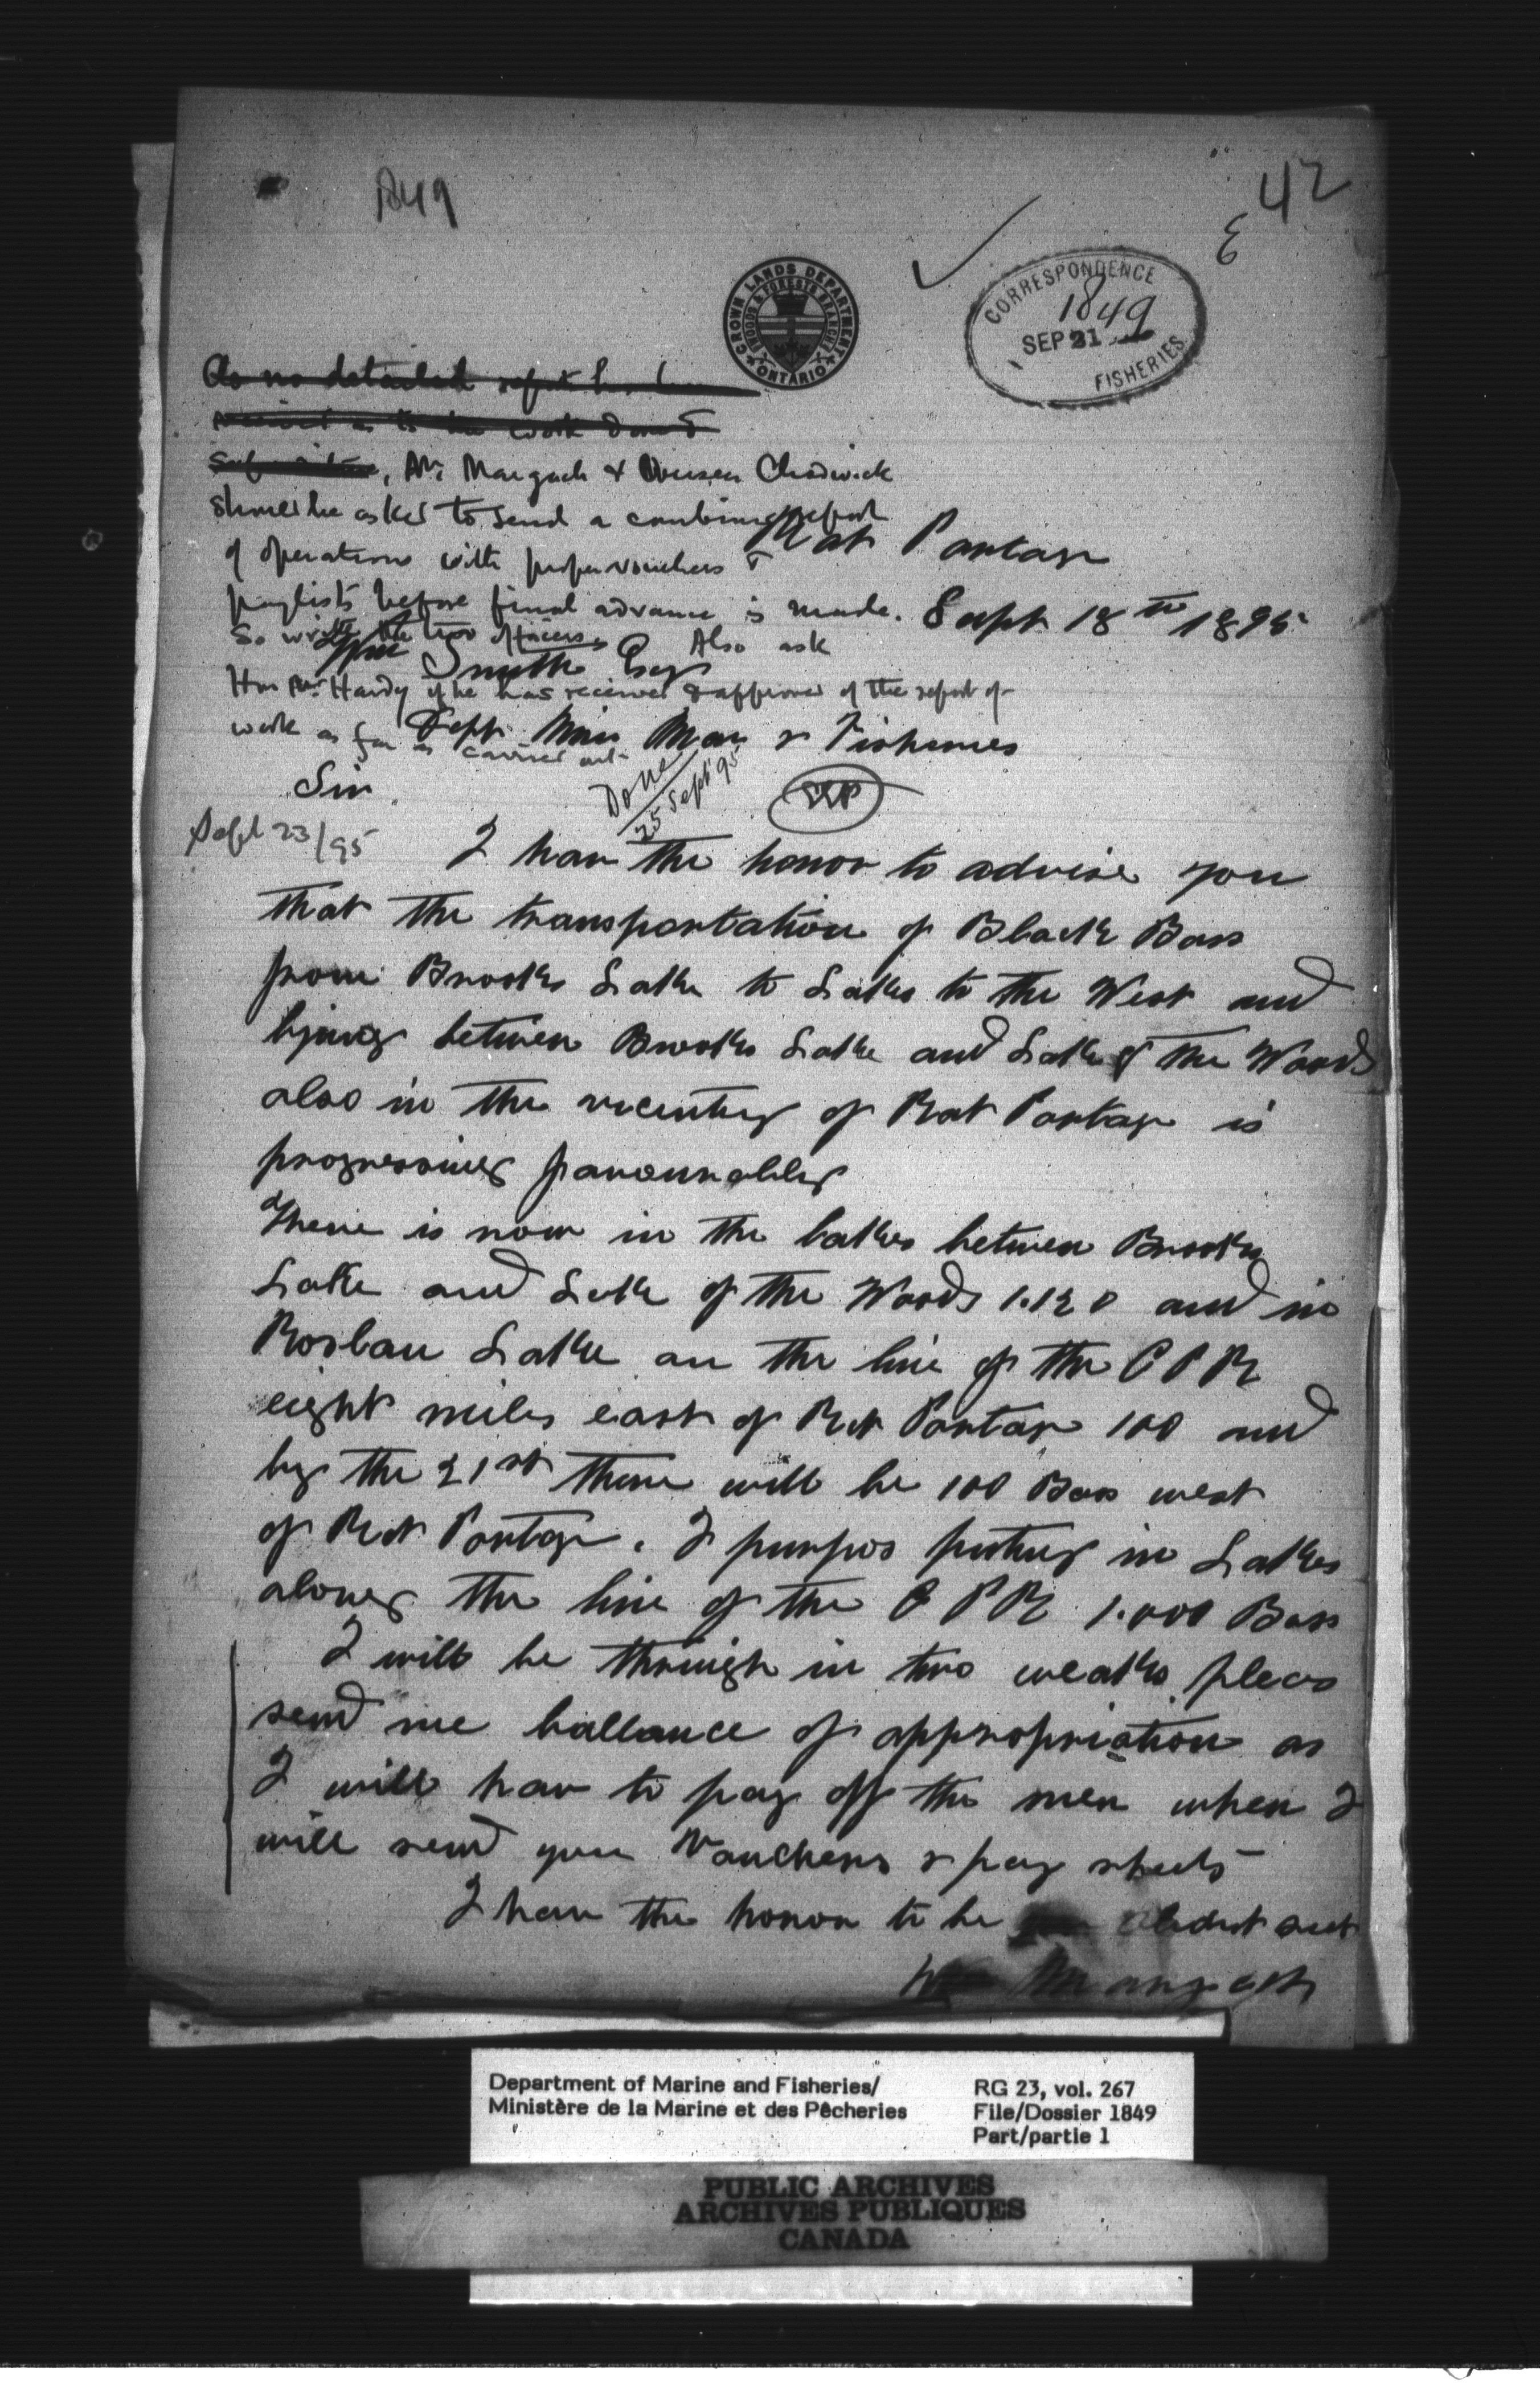 1849
42
CROWN LANDS DEPARTMENT
WOODS & FORESTS BRANCH
ONTARIO
CORRESPONDENCE
1849
SEP 21
FISHERIES
As no detailed report has been
received as to the work done &
, Mr Margach & Overseer Chadwick
should be asked to send a combined report
of operations with proper vouchers &
paylists before final advance is made.
So write the two officers. Also ask
Hon Mr Hardy if he has received & approved of the report of
work as far as carried out
Sept 23/95
Done
25 Sept 95
Rat Portage
Sept 18th 1895
Smith Esq
Dept Min Mar & Fisheries
Sir
I hav the honor to advise you
that the transportation of Black Bass
from Brooks Lake to Lakes to the West and
lying between Brooks Lake and Lake of the Woods
also in the vicenity of Rat Portage is
progressing favourabley
There is now in the lakes between Brooks
Lake and Lake of the Woods 1.120 and in
Roslau Lake on the line of the C P R
eight miles east of Rat Portage 100 and
by the 21st there will be 100 Bass west
of Rat Portage. I purpos puting in Lakes
along the line of the C P R 1.000 Bass
I will be through in two weaks pleas
send me ballance of appropriation as
I will hav to pay off the men when I
will send you Vouchers & pay sheets
I hav the honor to be your obedient servt
Wm Margach
Department of Marine and Fisheries/
Ministère de la Marine et des Pêcheries
RG 23, vol. 267
File/Dossier 1849
Part/partie 1
PUBLIC ARCHIVES
ARCHIVES PUBLIQUES
CANADA